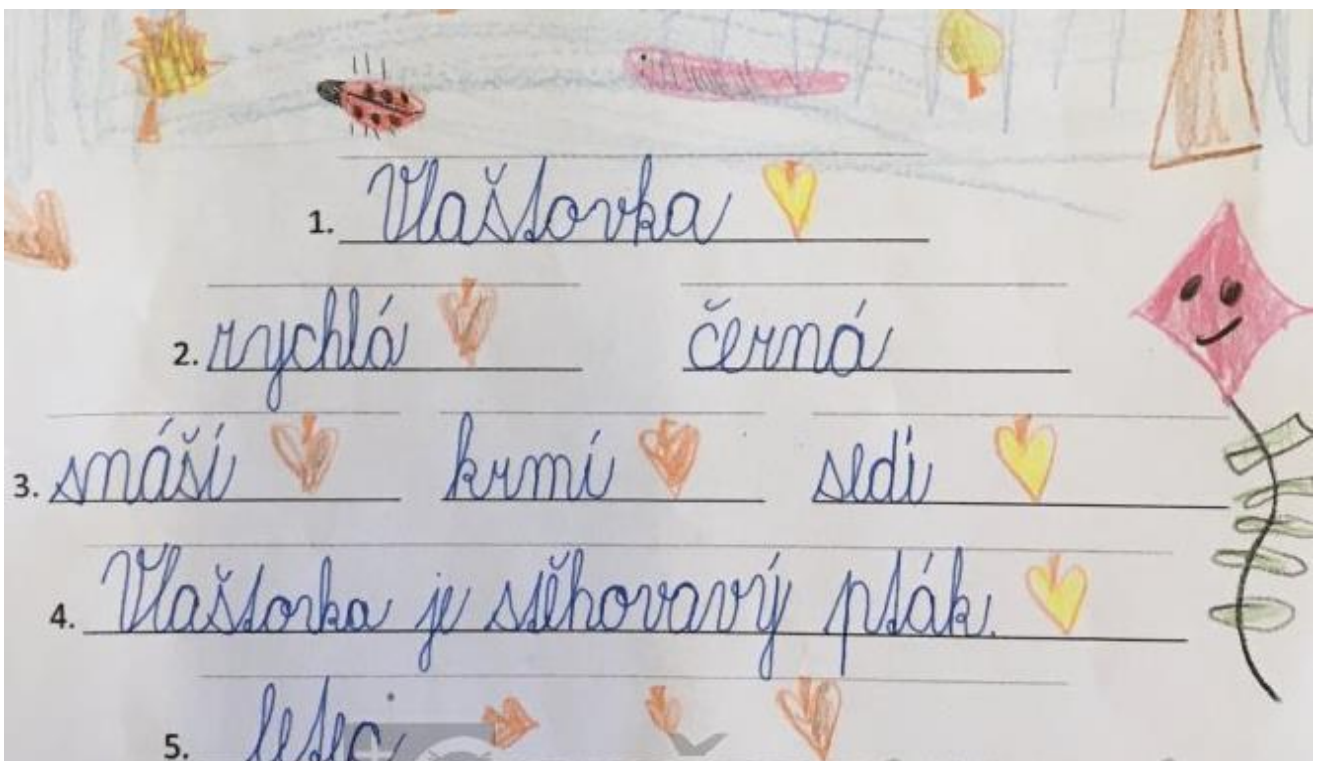 1. Vlaštovka
2. rychlá černá
3. snáší krmí sedí
4. Vlaštovka je stěhovavý pták.
5.